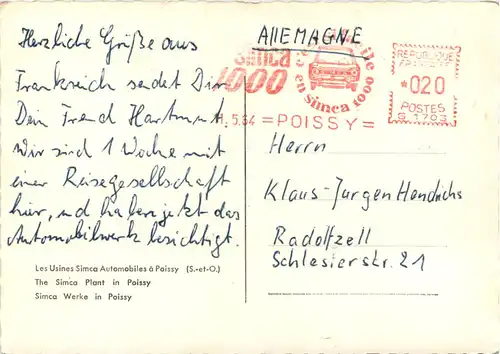 Herzliche Grüße aus
Frankreich sendet Dir
Dein Freund Hartmut
Wir sind 1 Woche mit
einer Reisegesellschaft
hier, und haben jetzt das
Automobilwerk besichtigt.
Les Usines Simca Automobiles à Poissy (S.-et-O.)
The Simca Plant in Poissy
Simca Werke in Poissy
AllEMAGNE
Simca
1000
en Simca 1000
5.64 =POISSY=
REPUBLIQUE
FRANCAISE
*020
POSTES
G.1703
Herrn
Klaus-Jurgen Hendrichs
Radolfzell
Schlesierstr. 21